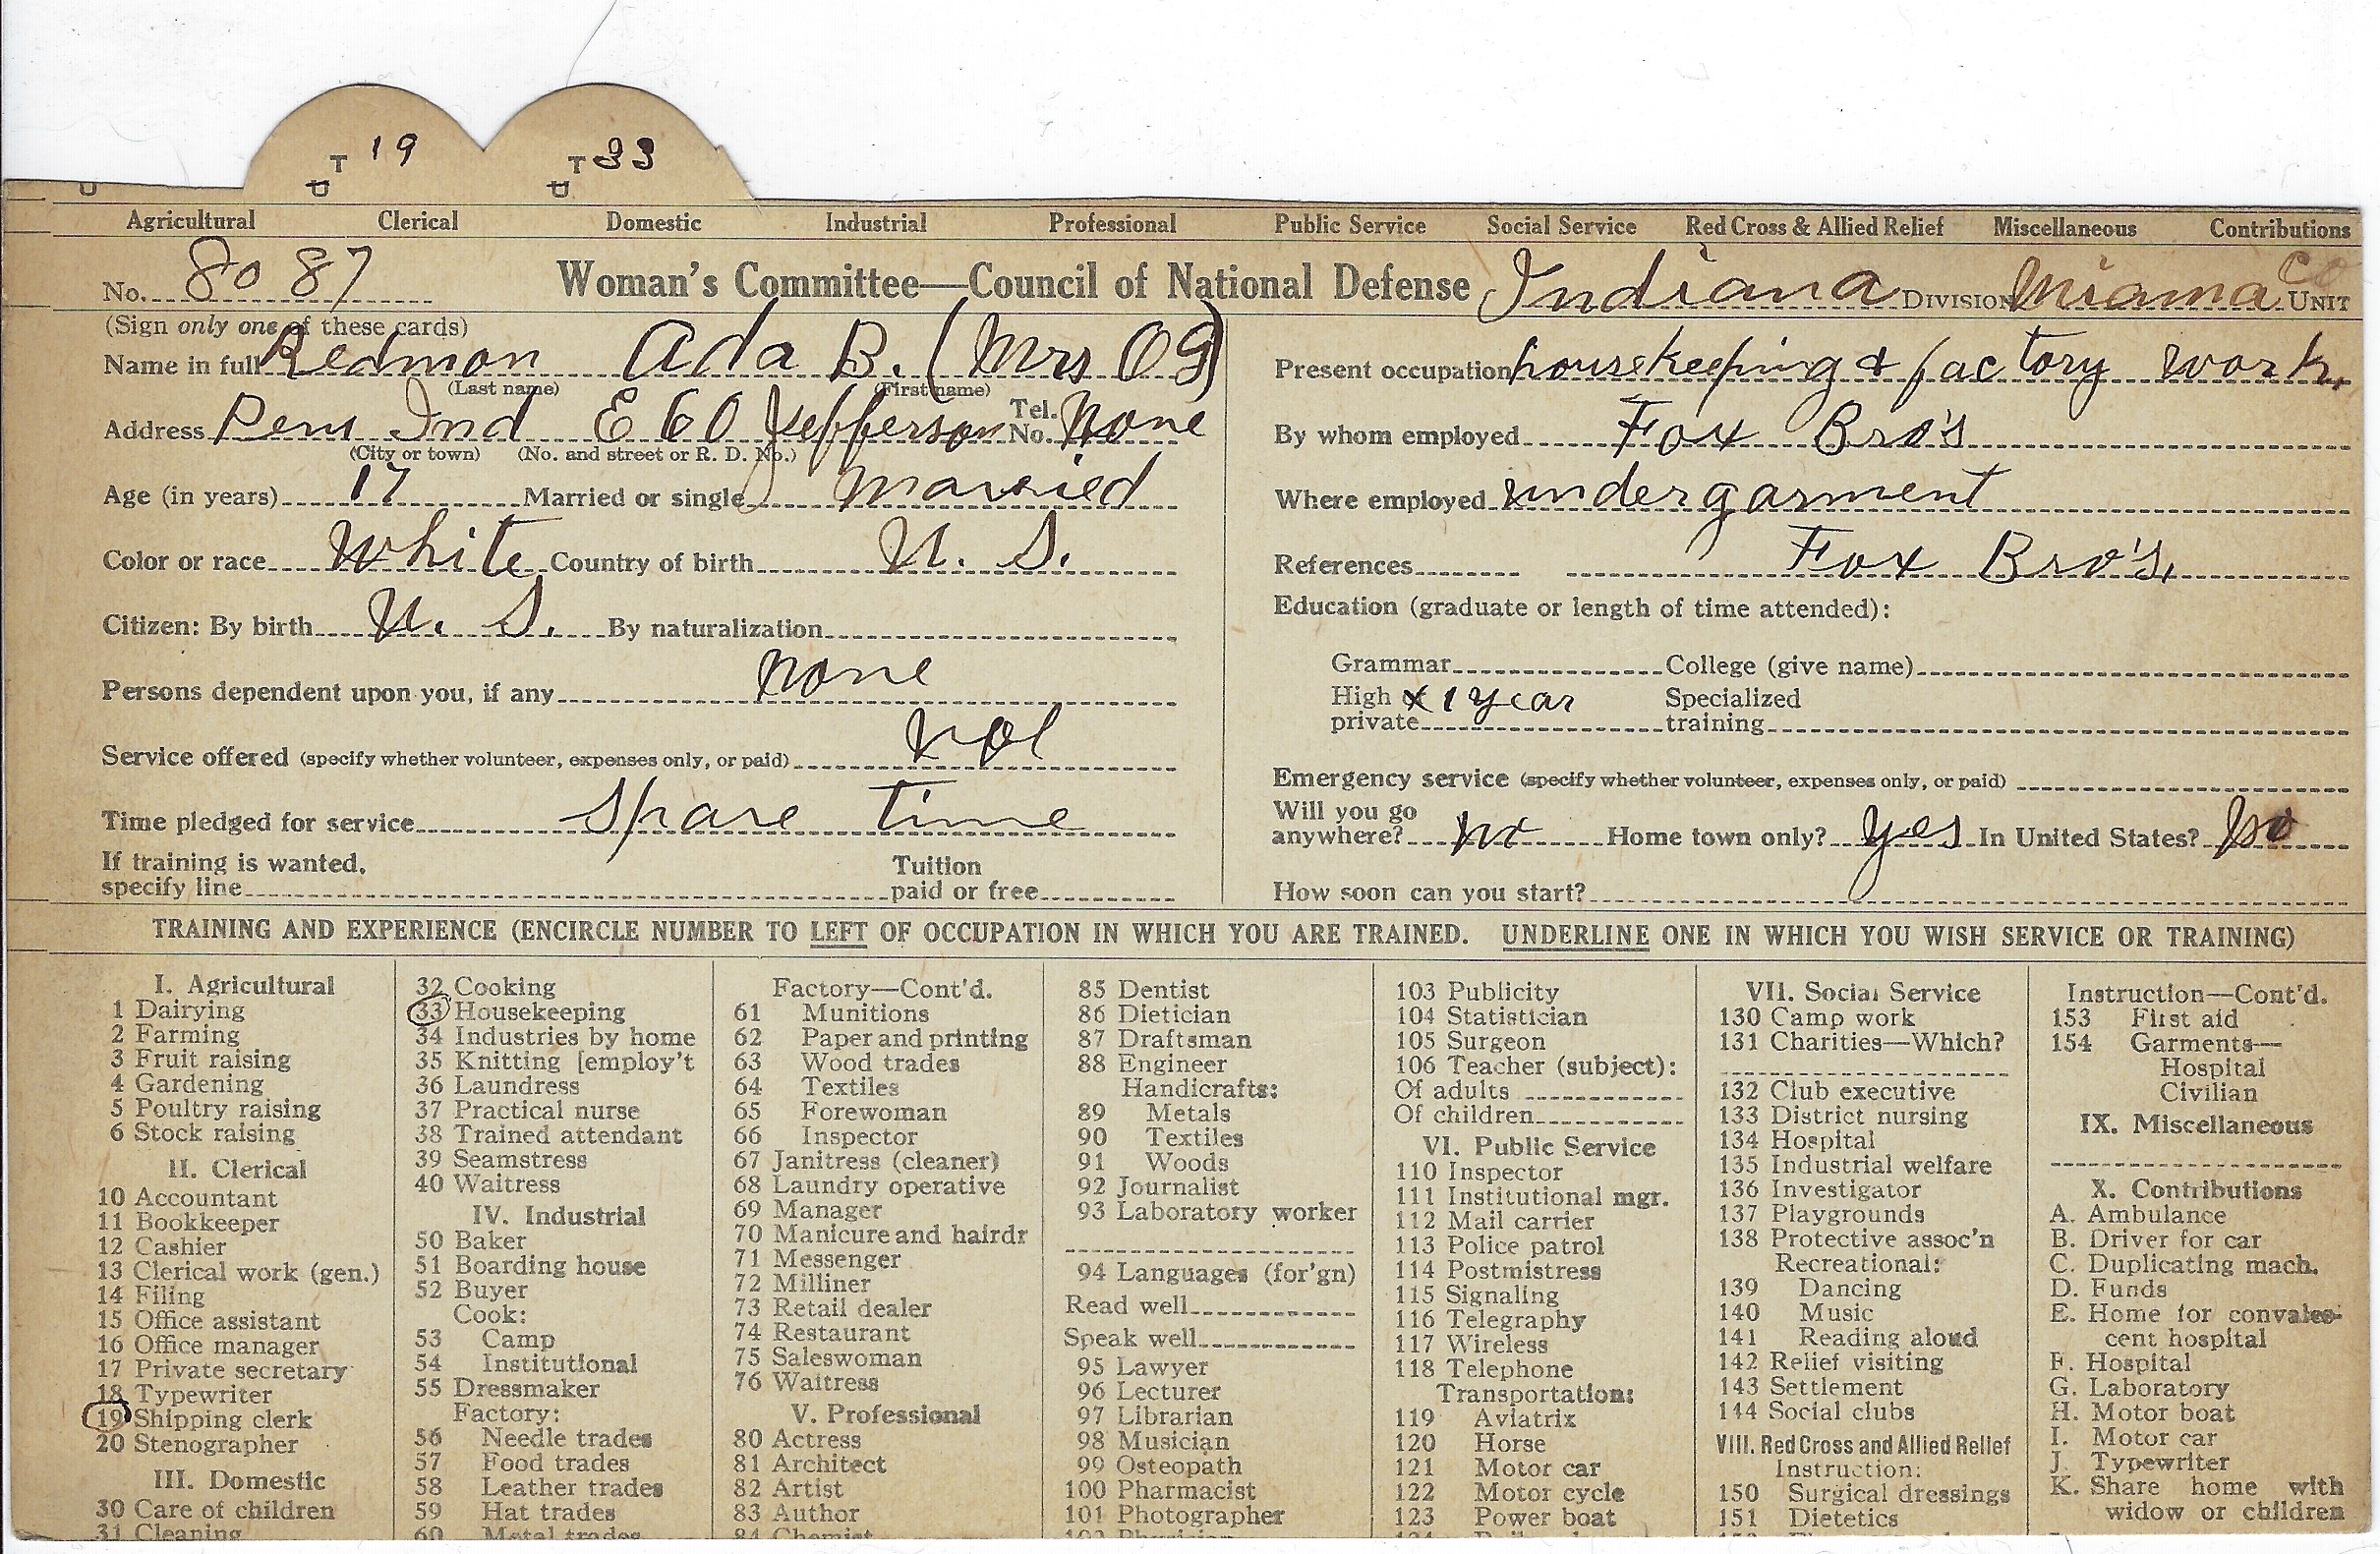 T 19 T 33
U U U
Agricultural Clerical Domestic Industrial Professional Public Service Social Service Red Cross & Allied Relief Miscellaneous Contributions
No. 8087 Woman's Committee—Council of National Defense Indiana DIVISION Miama Co UNIT
(Sign only one of these cards)
Name in full Redmon Ada B. (Mrs O G)
(Last name) (First name)
Address Peru Ind E 60 Jefferson Tel. No. None
(City or town) (No. and street or R. D. No.)
Age (in years) 17 Married or single married
Color or race White Country of birth U. S.
Citizen: By birth U. S. By naturalization
Persons dependent upon you, if any none
Service offered (specify whether volunteer, expenses only, or paid) Vol
Time pledged for service Spare time
If training is wanted, specify line Tuition paid or free
Present occupation housekeeping & factory work.
By whom employed Fox Bro's
Where employed undergarment
References Fox Bro's,
Education (graduate or length of time attended):
Grammar College (give name)
High or private x 1 year Specialized training
Emergency service (specify whether volunteer, expenses only, or paid)
Will you go anywhere? no Home town only? yes In United States? no
How soon can you start?
TRAINING AND EXPERIENCE (ENCIRCLE NUMBER TO LEFT OF OCCUPATION IN WHICH YOU ARE TRAINED. UNDERLINE ONE IN WHICH YOU WISH SERVICE OR TRAINING)
I. Agricultural
1 Dairying
2 Farming
3 Fruit raising
4 Gardening
5 Poultry raising
6 Stock raising
II. Clerical
10 Accountant
11 Bookkeeper
12 Cashier
13 Clerical work (gen.)
14 Filing
15 Office assistant
16 Office manager
17 Private secretary
18 Typewriter
19 Shipping clerk
20 Stenographer
III. Domestic
30 Care of children
31 Cleaning
32 Cooking
33 Housekeeping
34 Industries by home
35 Knitting [employ't
36 Laundress
37 Practical nurse
38 Trained attendant
39 Seamstress
40 Waitress
IV. Industrial
50 Baker
51 Boarding house
52 Buyer
Cook:
53 Camp
54 Institutional
55 Dressmaker
Factory:
56 Needle trades
57 Food trades
58 Leather trades
59 Hat trades
60 Metal trades
Factory—Cont'd.
61 Munitions
62 Paper and printing
63 Wood trades
64 Textiles
65 Forewoman
66 Inspector
67 Janitress (cleaner)
68 Laundry operative
69 Manager
70 Manicure and hairdr
71 Messenger
72 Milliner
73 Retail dealer
74 Restaurant
75 Saleswoman
76 Waitress
V. Professional
80 Actress
81 Architect
82 Artist
83 Author
84 Chemist
85 Dentist
86 Dietician
87 Draftsman
88 Engineer
Handicrafts:
89 Metals
90 Textiles
91 Woods
92 Journalist
93 Laboratory worker
94 Languages (for'gn)
Read well
Speak well
95 Lawyer
96 Lecturer
97 Librarian
98 Musician
99 Osteopath
100 Pharmacist
101 Photographer
102 Physician
103 Publicity
104 Statistician
105 Surgeon
106 Teacher (subject):
Of adults
Of children
VI. Public Service
110 Inspector
111 Institutional mgr.
112 Mail carrier
113 Police patrol
114 Postmistress
115 Signaling
116 Telegraphy
117 Wireless
118 Telephone
Transportation:
119 Aviatrix
120 Horse
121 Motor car
122 Motor cycle
123 Power boat
VII. Social Service
130 Camp work
131 Charities—Which?
132 Club executive
133 District nursing
134 Hospital
135 Industrial welfare
136 Investigator
137 Playgrounds
138 Protective assoc'n
Recreational:
139 Dancing
140 Music
141 Reading aloud
142 Relief visiting
143 Settlement
144 Social clubs
VIII. Red Cross and Allied Relief
Instruction:
150 Surgical dressings
151 Dietetics
Instruction—Cont'd.
153 First aid
154 Garments—
Hospital
Civilian
IX. Miscellaneous
X. Contributions
A. Ambulance
B. Driver for car
C. Duplicating mach.
D. Funds
E. Home for convales-
cent hospital
F. Hospital
G. Laboratory
H. Motor boat
I. Motor car
J. Typewriter
K. Share home with
widow or children